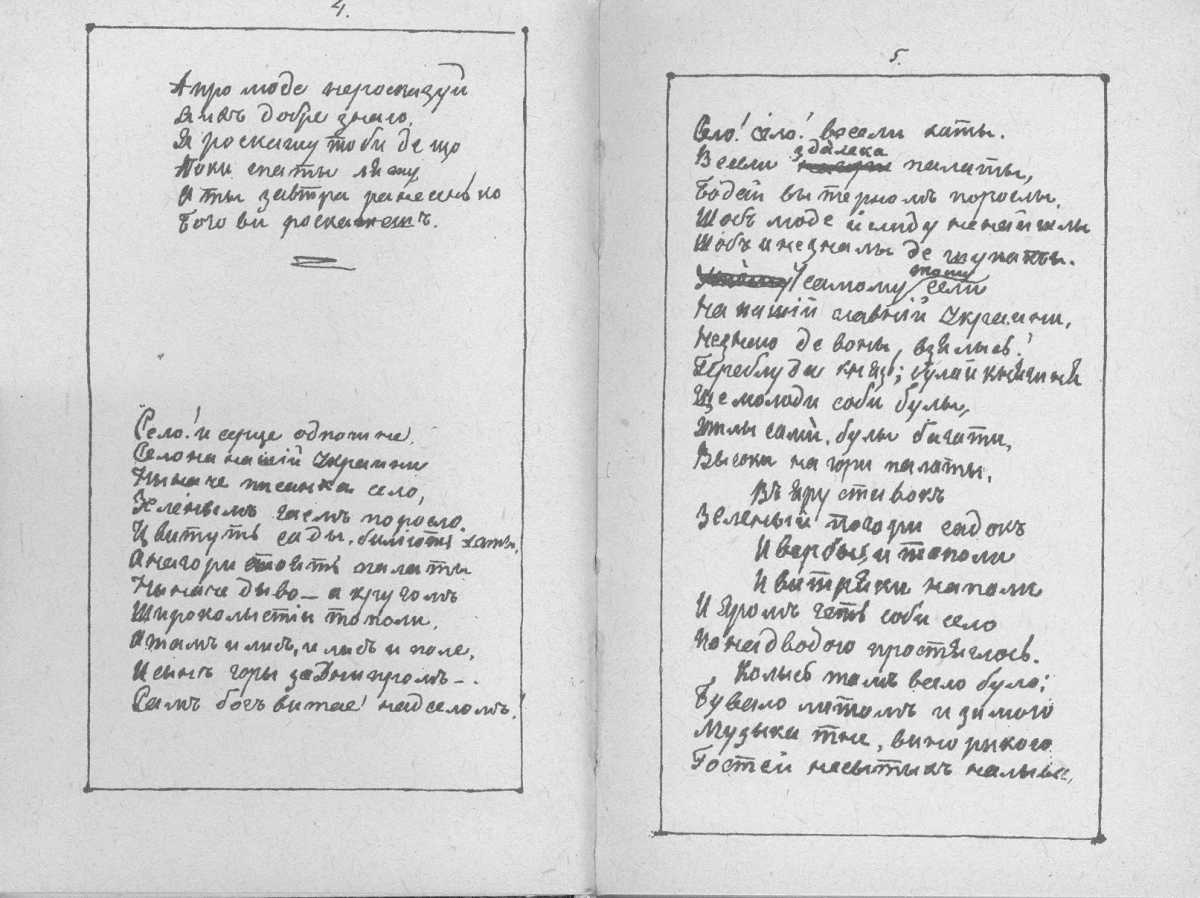 4.
А про люде нероспизуй
Я ихъ добре знаю.
Я роскажу тоби де що
Поки спаты ляжу
А ты завтра ранесенько
Богови роскажешъ.
Село! и серце одпочине.
Село на нашій Украини
Ныначе писанка село,
Зеленымъ гаемъ поросло.
Цвитуть сады, билiють хаты,
А на гори стоять палаты
Ныначе дыво — а кругомъ
Широколыстіи тополи,
А тамъ и лисъ, и лисъ и поле,
И сынѣ горы за Днипромъ —.
Самъ богъ витае надселомъ!
5.
Село! село! весели хаты.
Весели здалека палаты,
Бодай вы терномъ поросли,
Шобъ люде й слиду ненайшлы
Шобъ и незналы де шукаты.
У самому тому сели
На нашій славній Украини,
Незнаю де воны, взялысь!
Приблуда князь; була й княгиня
Ще молоди соби булы,
Жылы сами, булы багати,
Высоки на гори палаты,
Въ яру ставокъ
Зеленый по гори садокъ
И вербы, и тополи
И витряки на поли
И яромъ геть соби село
Понадводою простяглось.
Колысь тамъ весело було;
Бувало литомъ и зимою
Музыка тне, вино рикою
Гостей несытыхъ налыва,